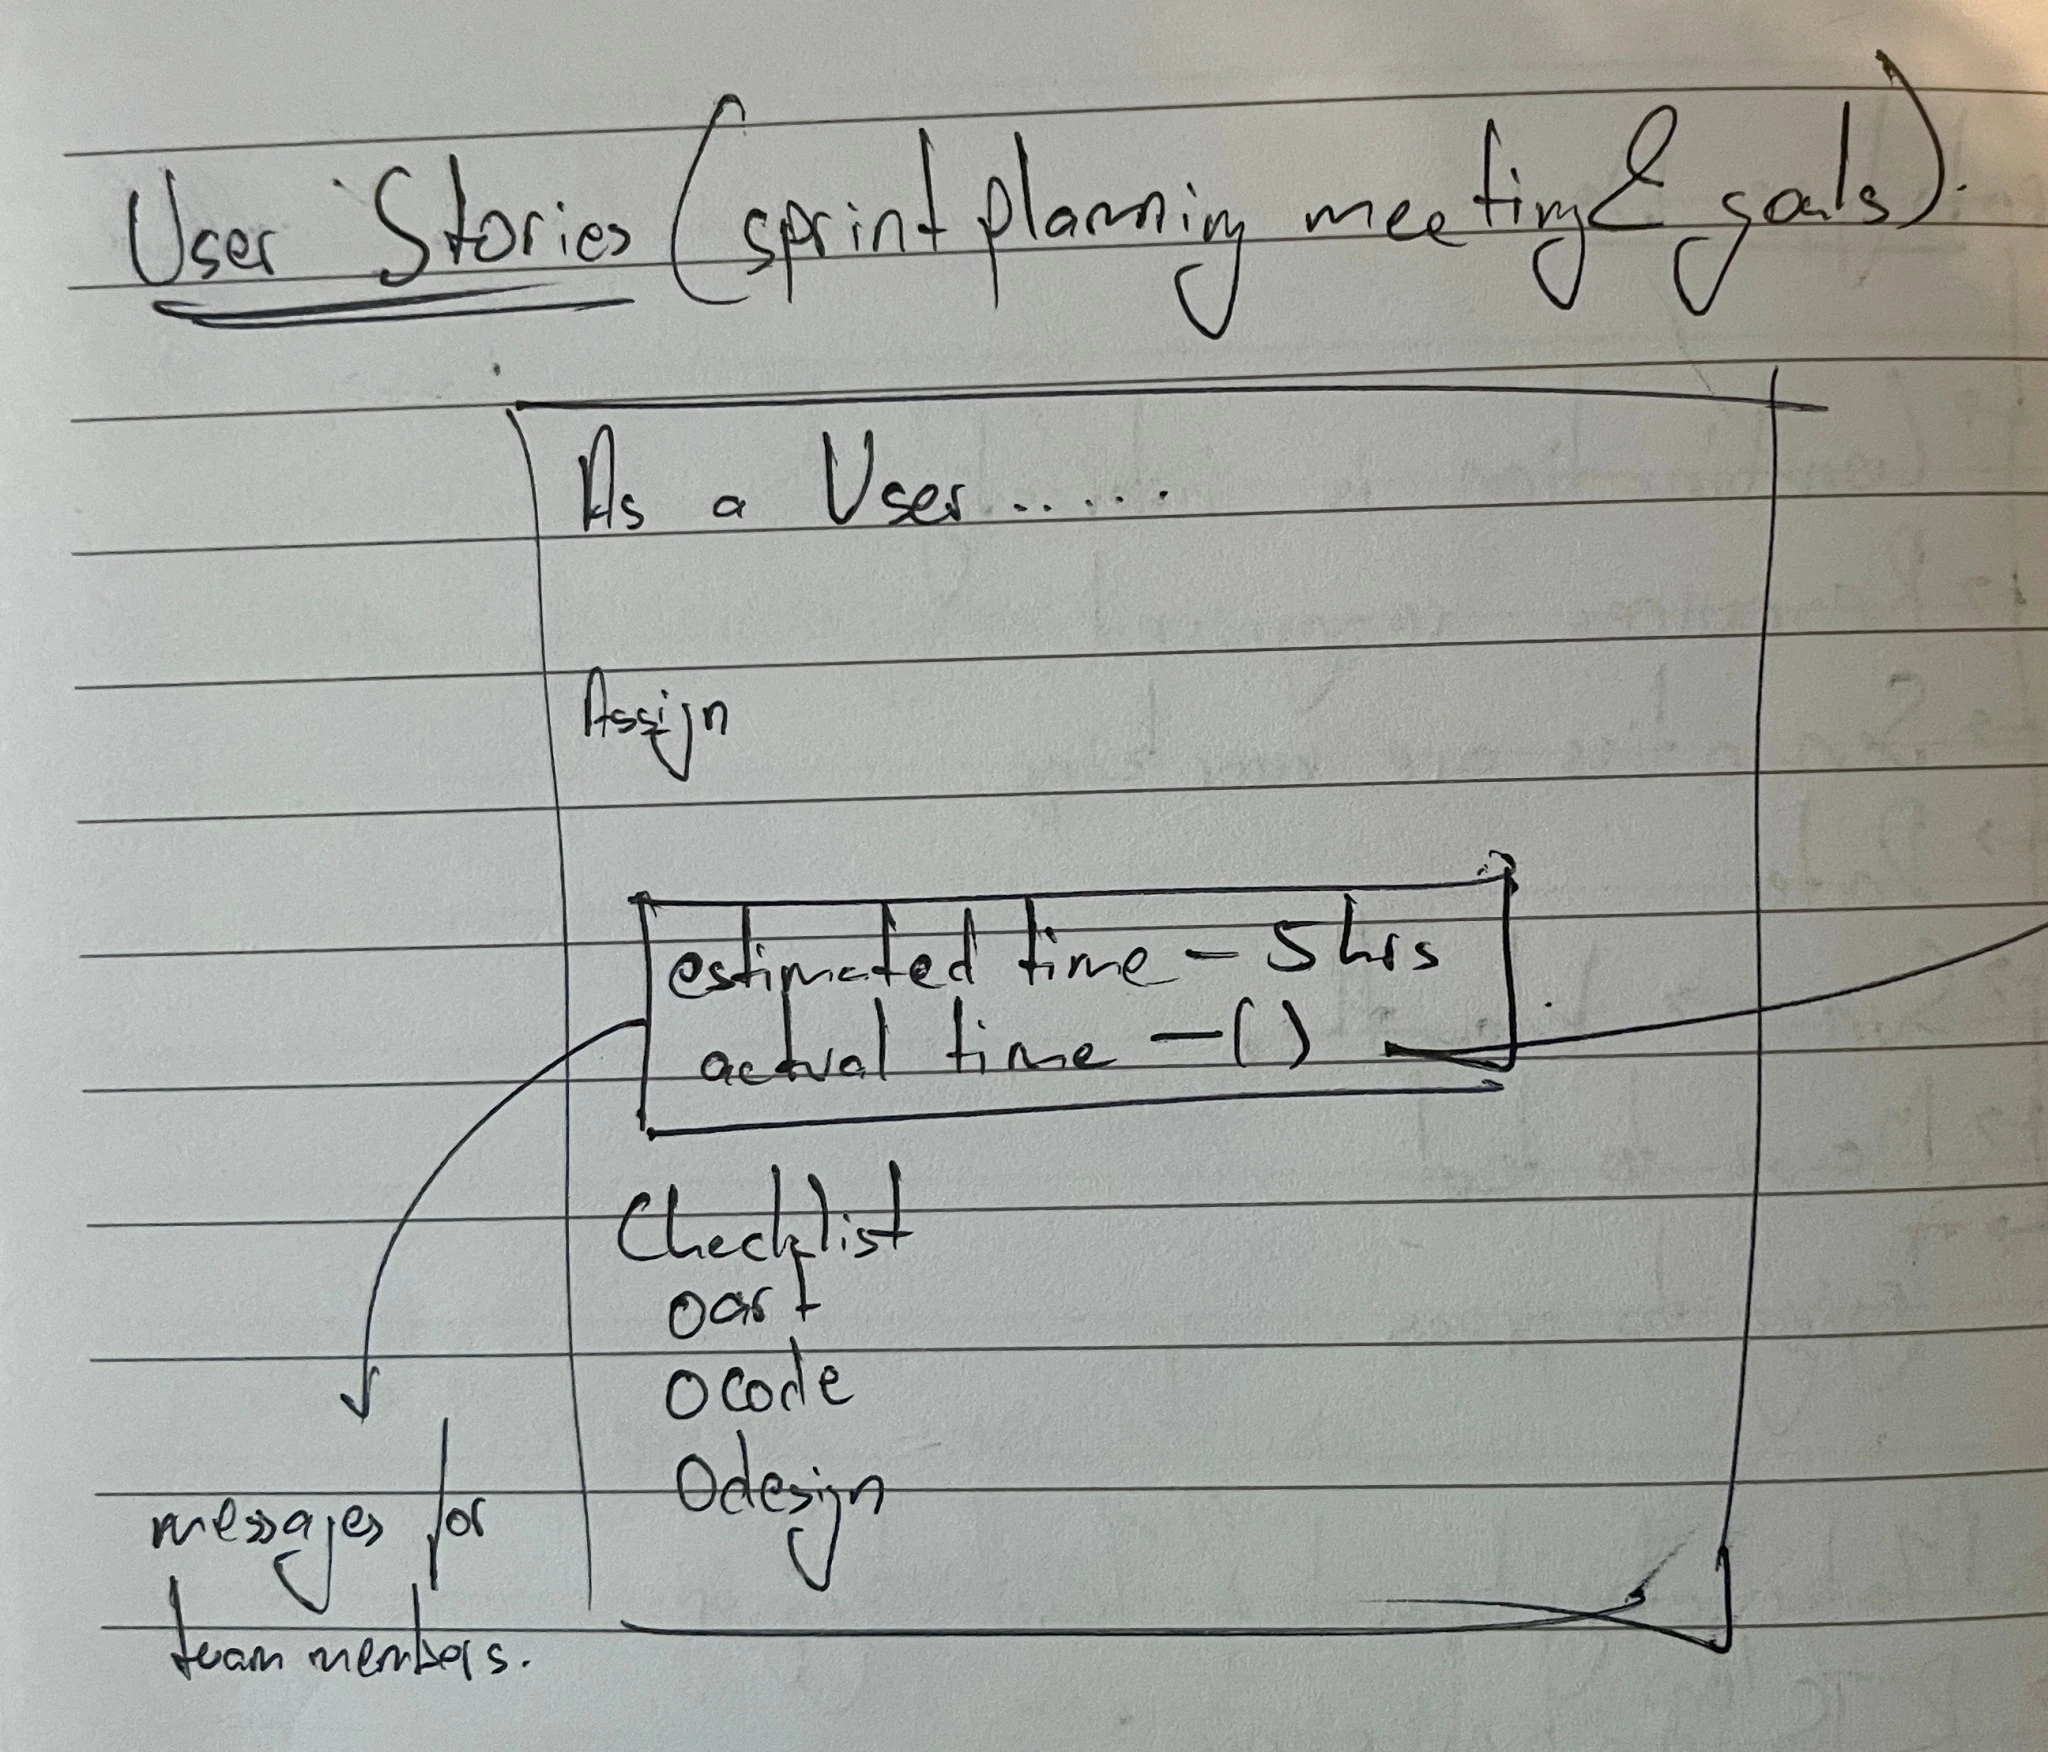 User Stories (sprint planning meeting & goals).
As a User .....
Assign
estimated time - 5 hrs
actual time - ( )
Checklist
O art
O code
O design
messages for
team members.